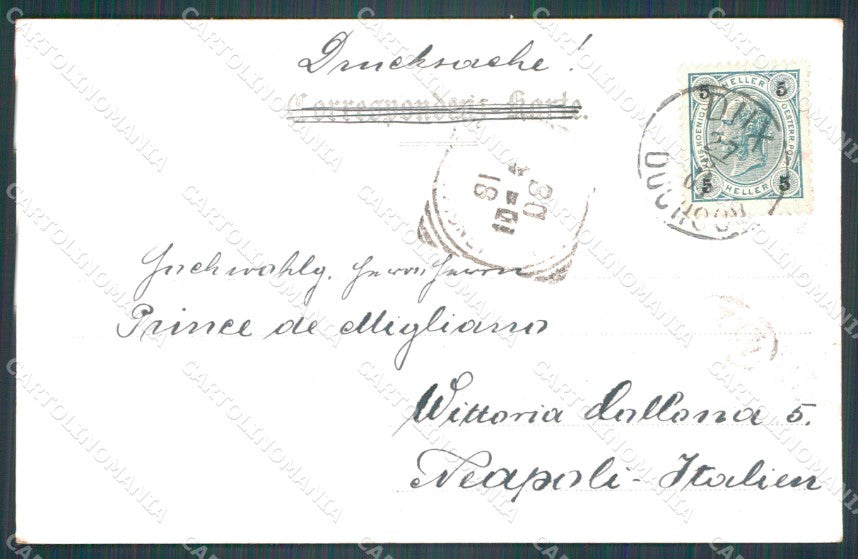 Drucksache!
Correspondenz-Karte.
5 HELLER 5
KAIS. KOENIGL. OESTERR. POST
5 HELLER 5
DUX
27
DUCHCOV
18
10
08
Hochwohlg. Herrn Herrn
Prince de Migliano
Wittoria Collona 5.
Neapoli-Italien
CARTOLINOMANIA